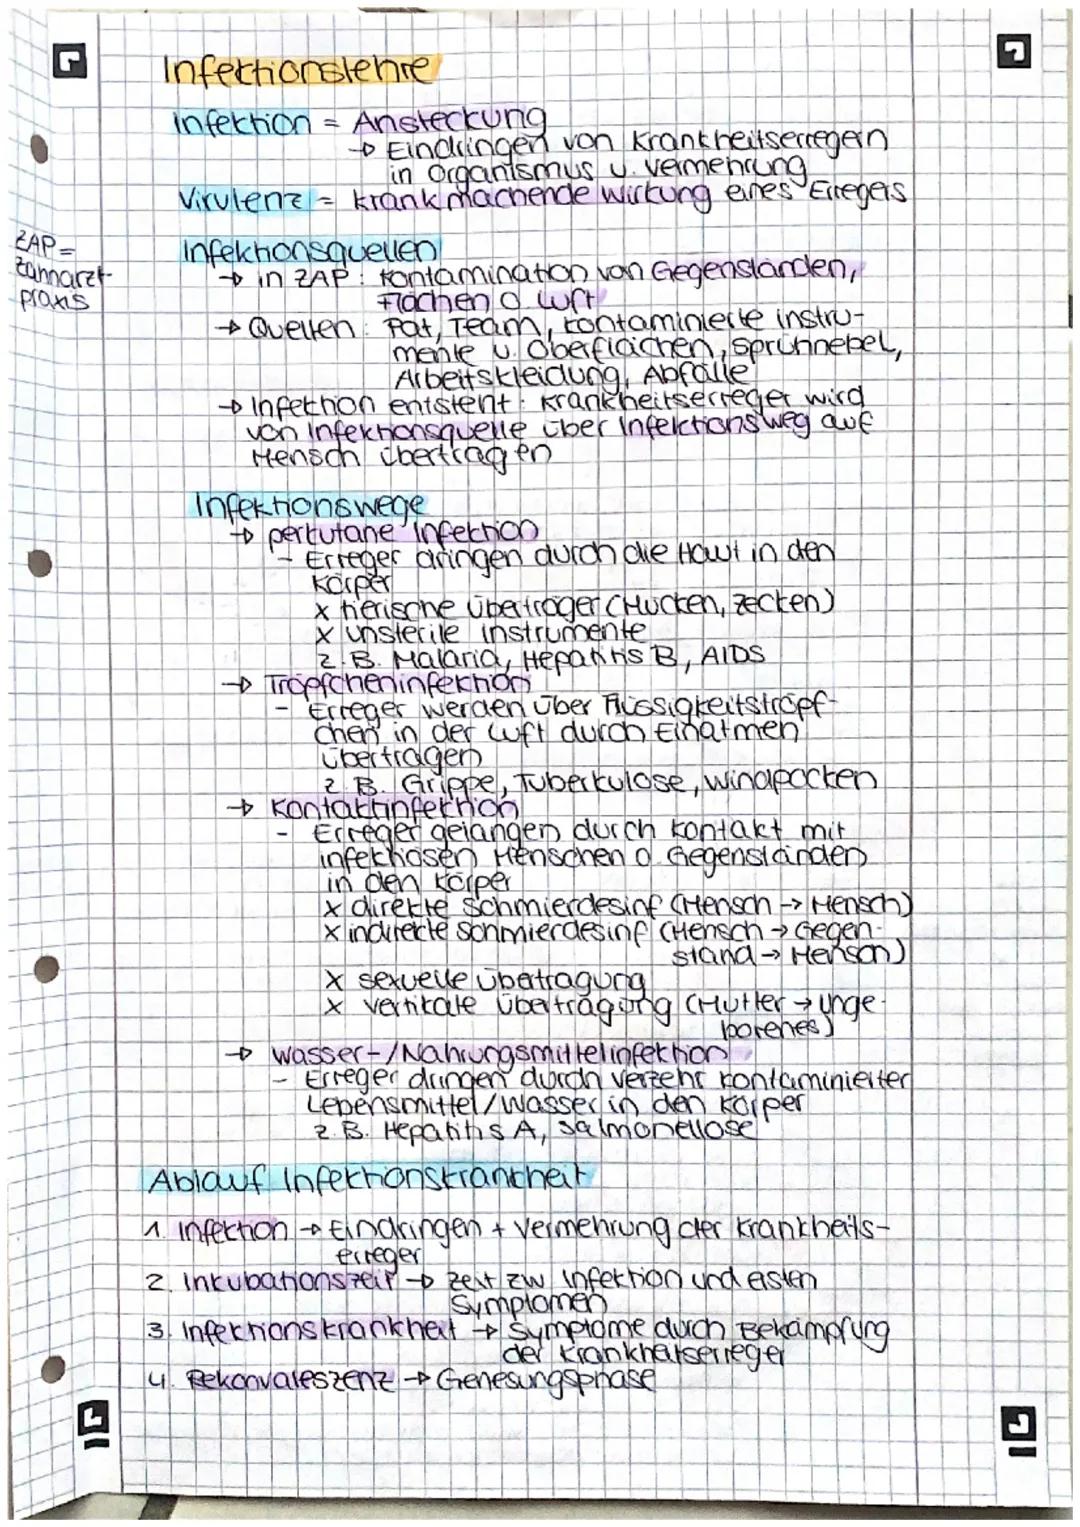 Infektionslehre
Infektion = Ansteckung
→ Eindringen von Krankheitserregern
in Organismus u. Vermehrung
Virulenz = krankmachende Wirkung eines Erregers
ZAP =
Zahnarzt-
praxis
Infektionsquellen
→ in ZAP: Kontamination von Gegenständen,
Flächen o. Luft
→ Quellen: Pat, Team, kontaminierte Instru-
mente u. Oberflächen, Sprühnebel,
Arbeitskleidung, Abfälle
→ Infektion entsteht: Krankheitserreger wird
von Infektionsquelle über Infektionsweg auf
Mensch übertragen
Infektionswege
→ perkutane Infektion
- Erreger dringen durch die Haut in den
Körper
x tierische Überträger (Mücken, Zecken)
x unsterile Instrumente
z.B. Malaria, Hepatitis B, AIDS
→ Tröpfcheninfektion
- Erreger werden über Flüssigkeitströpf-
chen in der Luft durch Einatmen
übertragen
z.B. Grippe, Tuberkulose, Windpocken
→ Kontaktinfektion
- Erreger gelangen durch Kontakt mit
infektiösen Menschen o. Gegenständen
in den Körper
x direkte Schmierdesinf (Mensch → Mensch)
x indirekte Schmierdesinf (Mensch → Gegen-
stand → Mensch)
x sexuelle Übertragung
x vertikale Übertragung (Mutter → Unge-
borenes)
→ Wasser-/Nahrungsmittelinfektion
- Erreger dringen durch Verzehr kontaminierter
Lebensmittel/Wasser in den Körper
z.B. Hepatitis A, Salmonellose
Ablauf Infektionskrankheit
1. Infektion → Eindringen + Vermehrung der Krankheits-
erreger
2. Inkubationszeit → Zeit zw. Infektion und ersten
Symptomen
3. Infektionskrankheit → Symptome durch Bekämpfung
der Krankheitserreger
4. Rekonvaleszenz → Genesungsphase